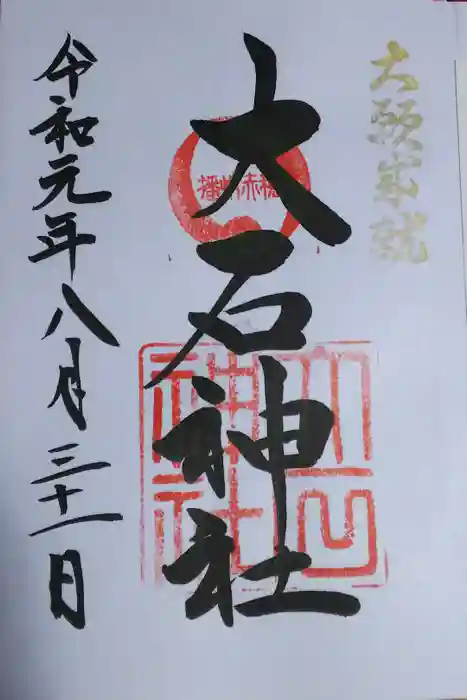 大願成就
大石神社
播州赤穂
大石
神社
令和元年八月三十一日